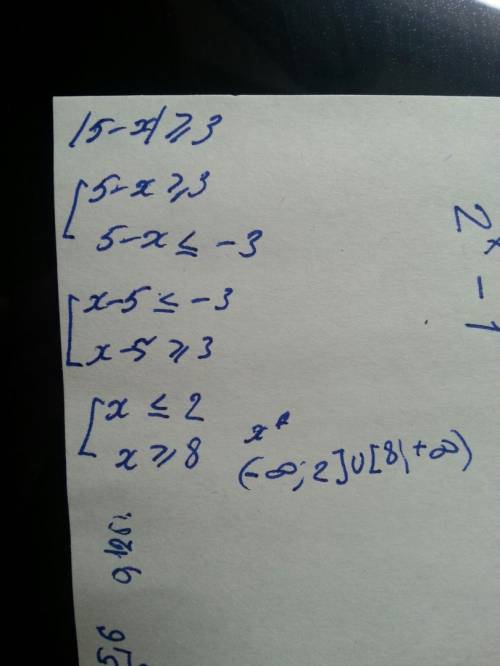 |5-x| ⩾ 3
[5-x ⩾ 3
5-x ≤ -3
[x-5 ≤ -3
x-5 ⩾ 3
[x ≤ 2
x ⩾ 8
(-∞; 2]∪[8; +∞)
2ˣ - 1